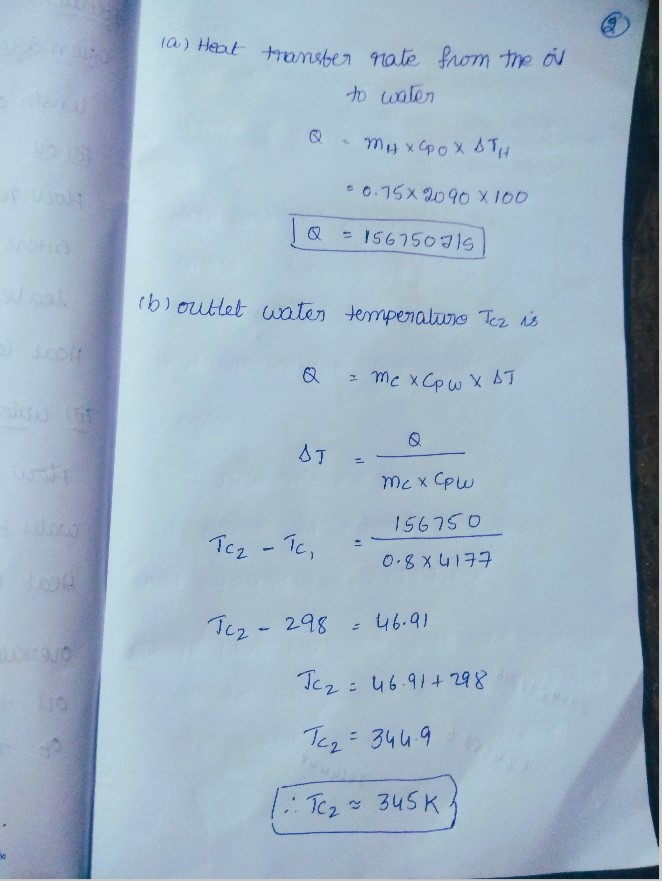 ②
(a) Heat transfer rate from the oil
to water
Q = mH x CpO x ΔTH
= 0.75 x 2090 x 100
Q = 156750 J/s
(b) outlet water temperature Tc2 is
Q = mc x Cpw x ΔT
ΔT = Q
mc x Cpw
Tc2 - Tc1 = 156750
0.8 x 4177
Tc2 - 298 = 46.91
Tc2 = 46.91 + 298
Tc2 = 344.9
∴ Tc2 ≈ 345 K